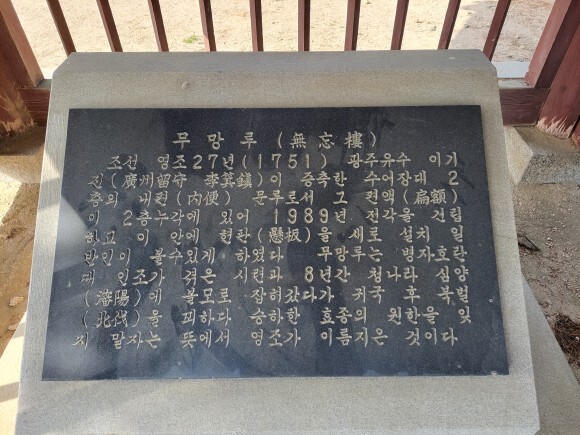 무망루(無忘樓)
조선 영조27년(1751) 광주유수 이기
진(廣州留守 李箕鎭)이 증축한 수어장대 2
층의 내편(内便) 문루로서 그 편액(扁額)
이 2층누각에 있어 1989년 전각을 건립
하고 이 안에 현판(懸板)을 새로 설치 일
반인이 볼수있게 하였다 무망루는 병자호란
때 인조가 겪은 시련과 8년간 청나라 심양
(瀋陽)에 볼모로 잡혀갔다가 귀국 후 북벌
(北伐)을 꾀하다 승하한 효종의 원한을 잊
지 말자는 뜻에서 영조가 이름지은 것이다